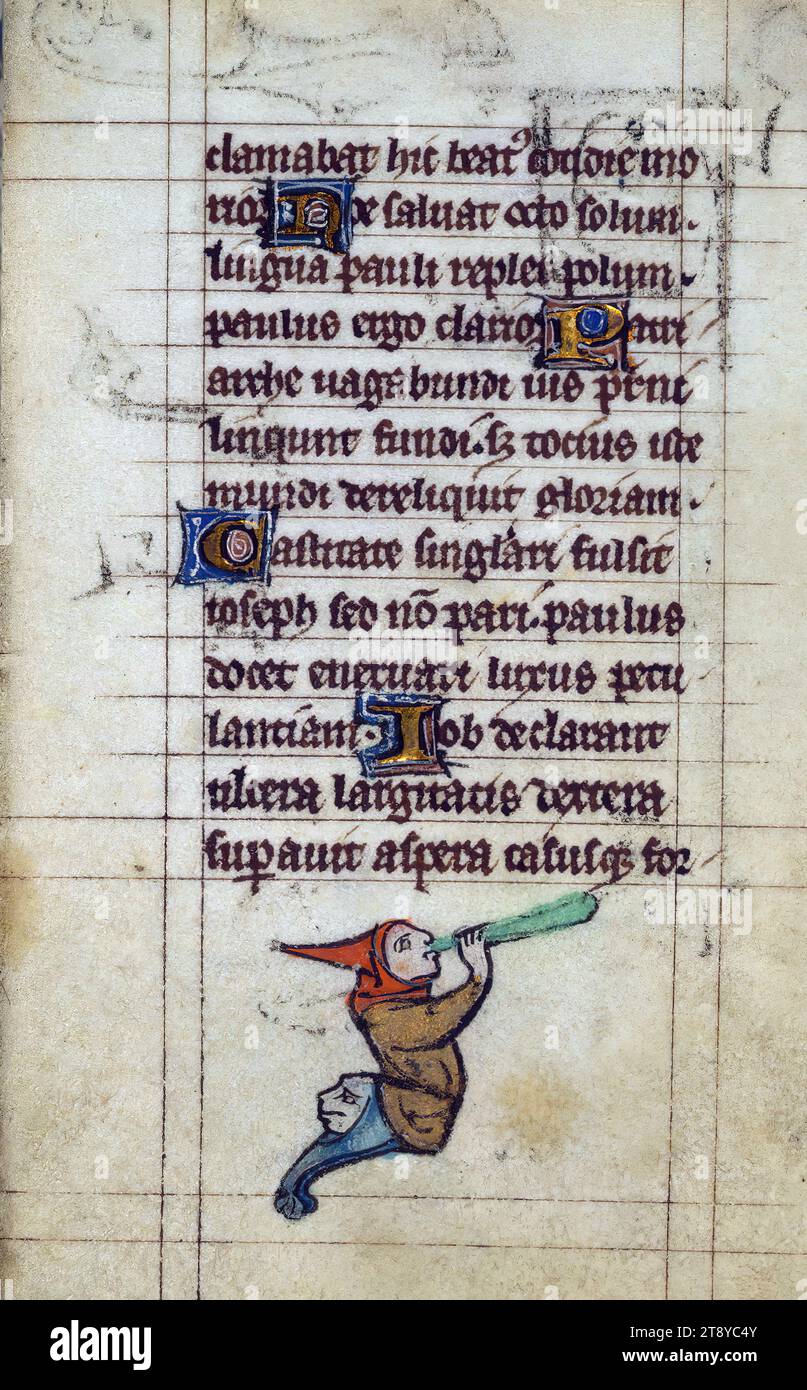 clamabat hic beatꝰ cotidie mo
rior Noe saluat octo solum.
lingua pauli replet polum.
paulus ergo clarior Patri
arche uagabundi uis prnci
linqunt fundi. sꝫ tocius iste
mundi dereliquit gloriam.
Castitate singlari fulsit
ioseph sed nō pari. paulus
docet eneruari luxus petu
lantiam. Iob declarant
ubera largitatis dextera
suꝑauit aspera casusqꝫ for
alamy
Image ID: 2T8YC4Y
www.alamy.com